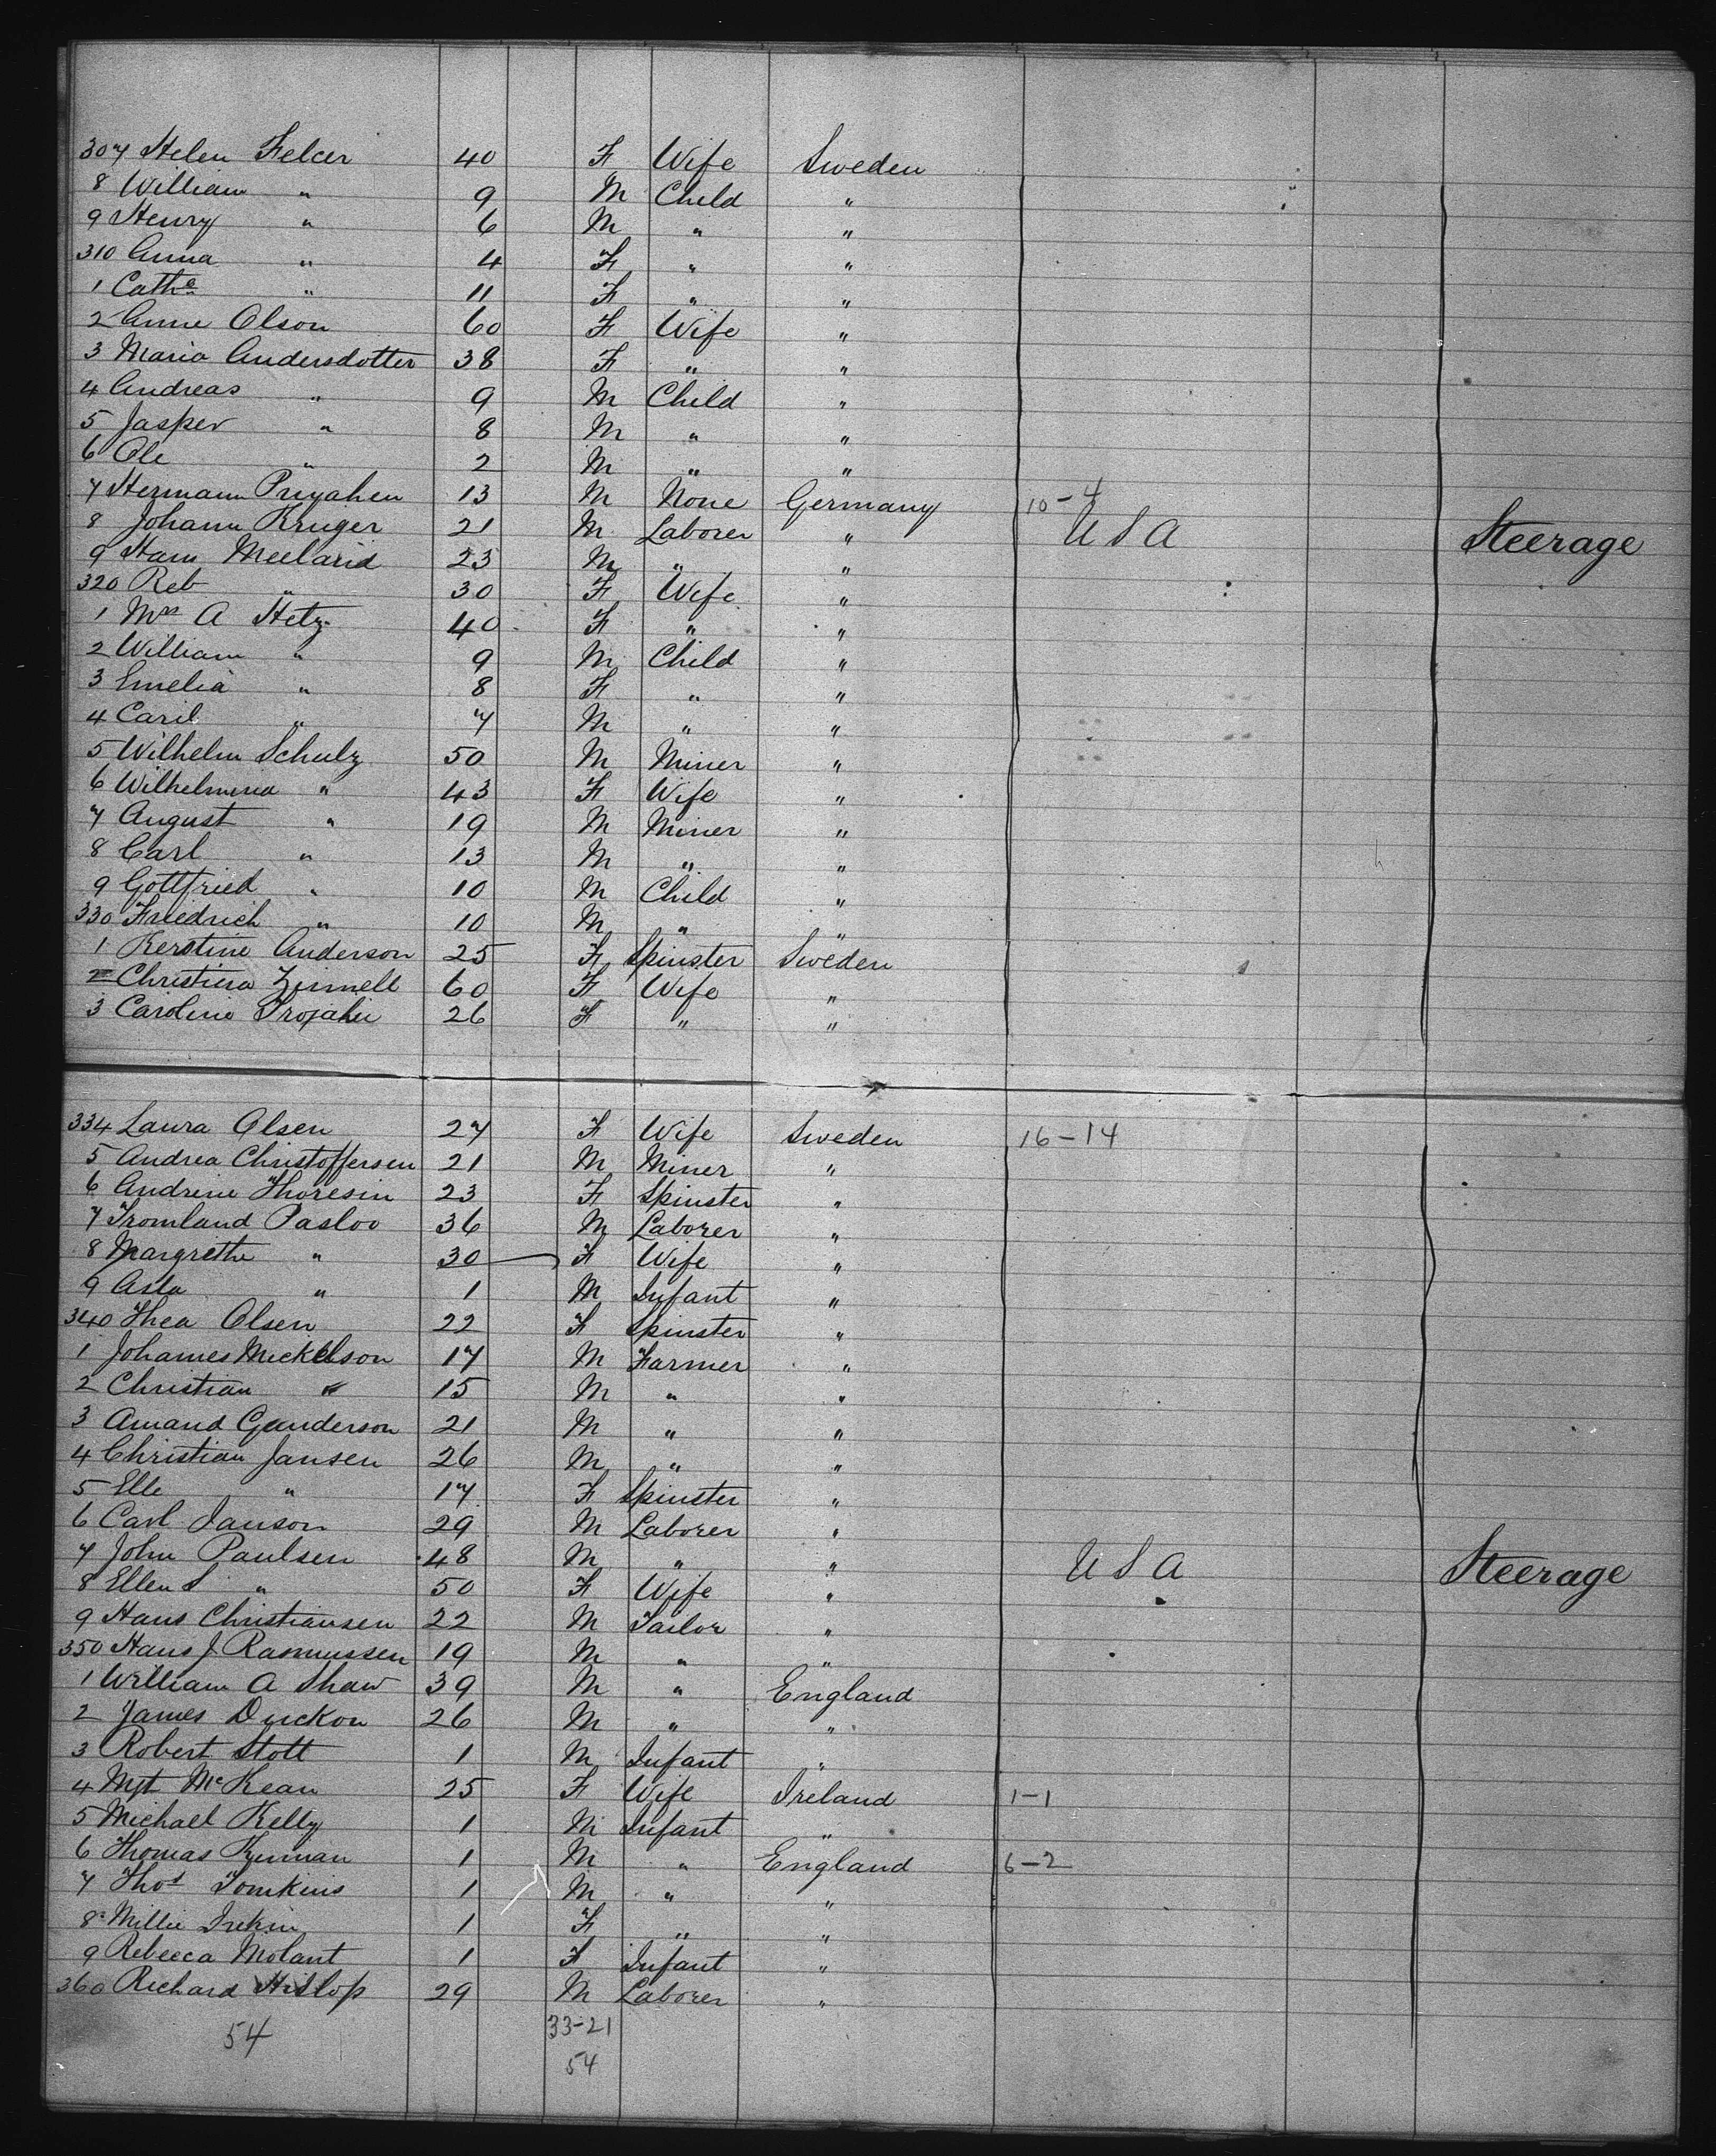 307 Helen Felcer 40 F Wife Sweden
8 William " 9 M Child "
9 Henry " 6 M " "
310 Anna " 4 F " "
1 Cathe " 11 F " "
2 Anne Olson 60 F Wife "
3 Maria Andersdotter 38 F " "
4 Andreas " 9 M Child "
5 Jasper " 8 M " "
6 Ole " 2 M " "
7 Hermann 13 M None Germany 10-4
8 Johann Kruger 21 M Laborer " U S A Steerage
9 Hans 23 M " "
320 Reb " 30 F Wife "
1 Mrs A Hetz 40 F " "
2 William " 9 M Child "
3 Emelia " 8 F " "
4 Caril " 7 M " "
5 Wilhelm Schulz 50 M Miner "
6 Wilhelmina " 43 F Wife "
7 August " 19 M Miner "
8 Carl " 13 M " "
9 Gottfried " 10 M Child "
330 Friedrich " 10 M " "
1 Kerstine Anderson 25 F Spinster Sweden
2 Christina 60 F Wife "
3 Caroline 26 F " "
334 Laura Olsen 27 F Wife Sweden 16-14
5 Andrea Christoffersen 21 M Miner "
6 Andrine Thoresin 23 F Spinster "
7 Tromland Pasloo 36 M Laborer "
8 Margrethe " 30 F Wife "
9 Asla " 1 M Infant "
340 Thea Olsen 22 F Spinster "
1 Johames Mickelson 17 M Farmer "
2 Christian " 15 M " "
3 Amand Gunderson 21 M " "
4 Christian Jansen 26 M " "
5 Elle " 17 F Spinster "
6 Carl Janson 29 M Laborer "
7 John Paulsen 48 M " " U S A Steerage
8 Ellen S " 50 F Wife "
9 Hans Christiansen 22 M Tailor "
350 Hans J Rasmussen 19 M " "
1 William A Shaw 39 M " England
2 James 26 M " "
3 Robert Stott 1 M Infant "
4 Mgt McKean 25 F Wife Ireland 1-1
5 Michael Kelly 1 M Infant "
6 Thomas 1 M " England 6-2
7 Thos Tomkins 1 M " "
8 Millie 1 F " "
9 Rebecca Molant 1 F Infant "
360 Richard Hislop 29 M Laborer "
54 33-21
54